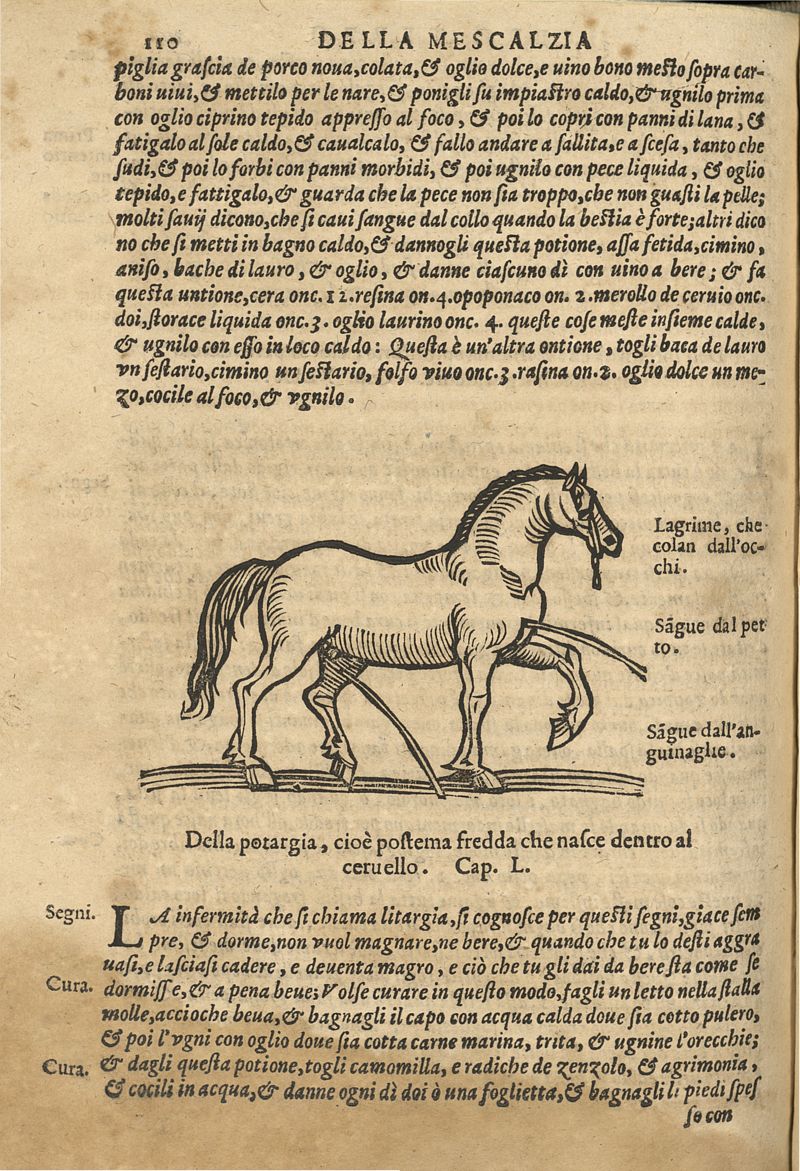 110 DELLA MESCALZIA
piglia graſcia de porco noua,colata,& oglio dolce,e uino bono meſto ſopra car-
boni uiui,& mettilo per le nare,& ponigli ſu impiaſtro caldo,& ugnilo prima
con oglio ciprino tepido appreſſo al foco, & poi lo copri con panni di lana, &
fatigalo al ſole caldo,& caualcalo, & fallo andare a ſallita,e a ſceſa, tanto che
ſudi,& poi lo forbi con panni morbidi, & poi ugnilo con pece liquida, & oglio
tepido,e fattigalo,& guarda che la pece non ſia troppo,che non guaſti la pelle;
molti ſauij dicono,che ſi caui ſangue dal collo quando la beſtia è forte;altri dico
no che ſi metti in bagno caldo,& dannogli queſta potione, aſſa fetida,cimino,
aniſo, bache di lauro, & oglio, & danne ciaſcuno dì con uino a bere; & fa
queſta untione,cera onc.12.reſina on.4.opoponaco on. 2.merollo de ceruio onc.
doi,ſtorace liquida onc.3. oglio laurino onc. 4. queſte coſe meſte inſieme calde,
& ugnilo con eſſo in loco caldo: Queſta è un'altra ontione, togli baca de lauro
vn ſeſtario,cimino un ſeſtario, ſolfo viuo onc.3.raſina on.2. oglio dolce un me-
zo,cocile al foco,& vgnilo.
Lagrime, che
colan dall'oc-
chi.
Sãgue dal pet
to.
Sãgue dall'an-
guinaglie.
Della potargia, cioè poſtema fredda che naſce dentro al
ceruello. Cap. L.
Segni.
LA infermità che ſi chiama litargia,ſi cognoſce per queſti ſegni,giace ſem
pre, & dorme,non vuol magnare,ne bere,& quando che tu lo deſti aggra
uaſi,e laſciaſi cadere, e deuenta magro, e ciò che tu gli dai da bere ſta come ſe
Cura.
dormiſſe,& a pena beue;Volſe curare in queſto modo,fagli un letto nella ſtalla
molle,accioche beua,& bagnagli il capo con acqua calda doue ſia cotto pulero,
& poi l'vgni con oglio doue ſia cotta carne marina, trita, & ugnine l'orecchie;
Cura.
& dagli queſta potione,togli camomilla, e radiche de zenzolo, & agrimonia,
& cocili in acqua,& danne ogni dì doi ò una foglietta,& bagnagli li piedi ſpeſ
ſo con